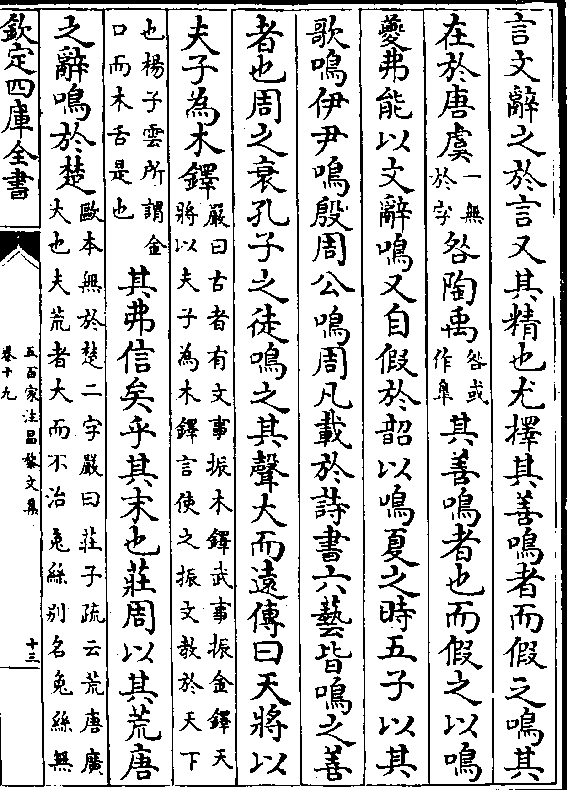 言文辭之於言又其精也尤擇其善鳴者而假之鳴其
在於唐虞一無於字咎陶禹咎或作臯其善鳴者也而假之以鳴
夔弗能以文辭鳴又自假於韶以鳴夏之時五子以其
歌鳴伊尹鳴殷周公鳴周凡載於詩書六藝皆鳴之善
者也周之衰孔子之徒鳴之其聲大而遠傳曰天將以
夫子為木鐸嚴曰古者有文事振木鐸武事振金鐸天將以夫子為木鐸言使之振文教於天下
也楊子雲所謂金口而木舌是也其弗信矣乎其末也莊周以其荒唐
之辭鳴於楚歐本無於楚二字嚴曰莊子疏云荒唐廣大也夫荒者大而不治兎絲別名兎絲無
欽定四庫全書
五百家注昌黎文集
卷十九
十三